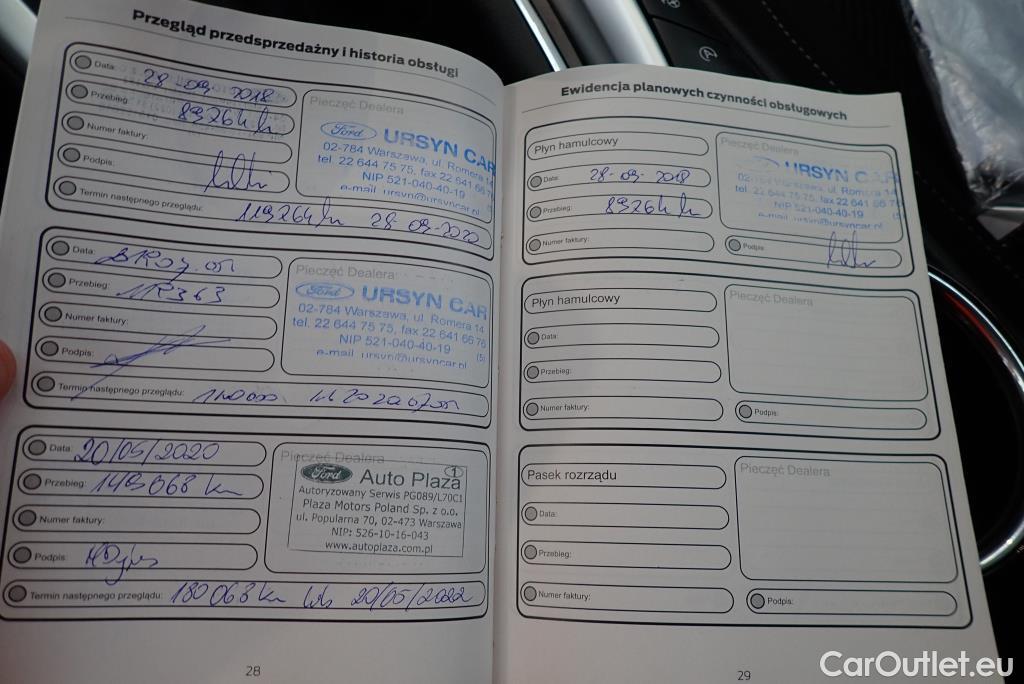 Przegląd przedsprzedażny i historia obsługi
Data: 28-09-2018
Przebieg: 89264 km
Numer faktury:
Podpis:
Termin następnego przeglądu: 119264 km 28-09-2020
Pieczęć Dealera
Ford URSYN CAR
02-784 Warszawa, ul. Romera 14
tel. 22 644 75 75, fax 22 641 66 76
NIP 521-040-40-19 (5)
e-mail ursyn@ursyncar.pl
Data:
Przebieg:
Numer faktury:
Podpis:
Termin następnego przeglądu:
Pieczęć Dealera
Ford URSYN CAR
02-784 Warszawa, ul. Romera 14
tel. 22 644 75 75, fax 22 641 66 76
NIP 521-040-40-19 (5)
e-mail ursyn@ursyncar.pl
Data: 20/05/2020
Przebieg: 149068 km
Numer faktury:
Podpis:
Termin następnego przeglądu: 180068 km lub 20/05/2022
Pieczęć Dealera
Ford Auto Plaza 1
Autoryzowany Serwis PG089/L70C1
Plaza Motors Poland Sp. z o.o.
ul. Popularna 70, 02-473 Warszawa
NIP: 526-10-16-043
www.autoplaza.com.pl
28
Ewidencja planowych czynności obsługowych
Płyn hamulcowy
Data: 28-09-2018
Przebieg: 89264 km
Numer faktury:
Pieczęć Dealera
Ford URSYN CAR
02-784 Warszawa, ul. Romera
tel. 22 644 75 75, fax 22 641 66
NIP 521-040-40-19 (5)
e-mail ursyn@ursyncar.pl
Podpis:
Płyn hamulcowy
Data:
Przebieg:
Numer faktury:
Pieczęć Dealera
Podpis:
Pasek rozrządu
Data:
Przebieg:
Numer faktury:
Pieczęć Dealera
Podpis:
29
CarOutlet.eu